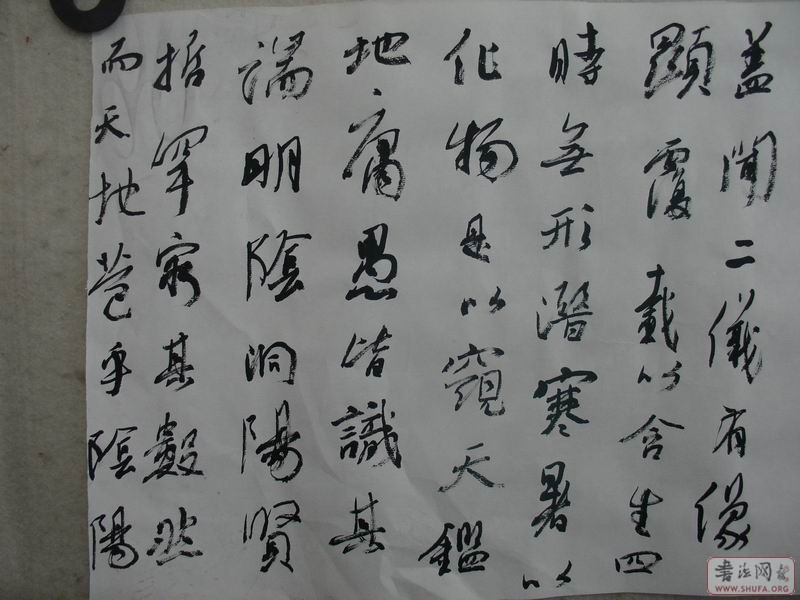 盖聞二儀有像
顯覆載以含生四
時無形潛寒暑以
化物是以窺天鑑
地庸愚皆識其
端明陰洞陽賢
哲罕窮其數然
而天地苞乎陰陽
書法网
WWW.SHUFA.ORG